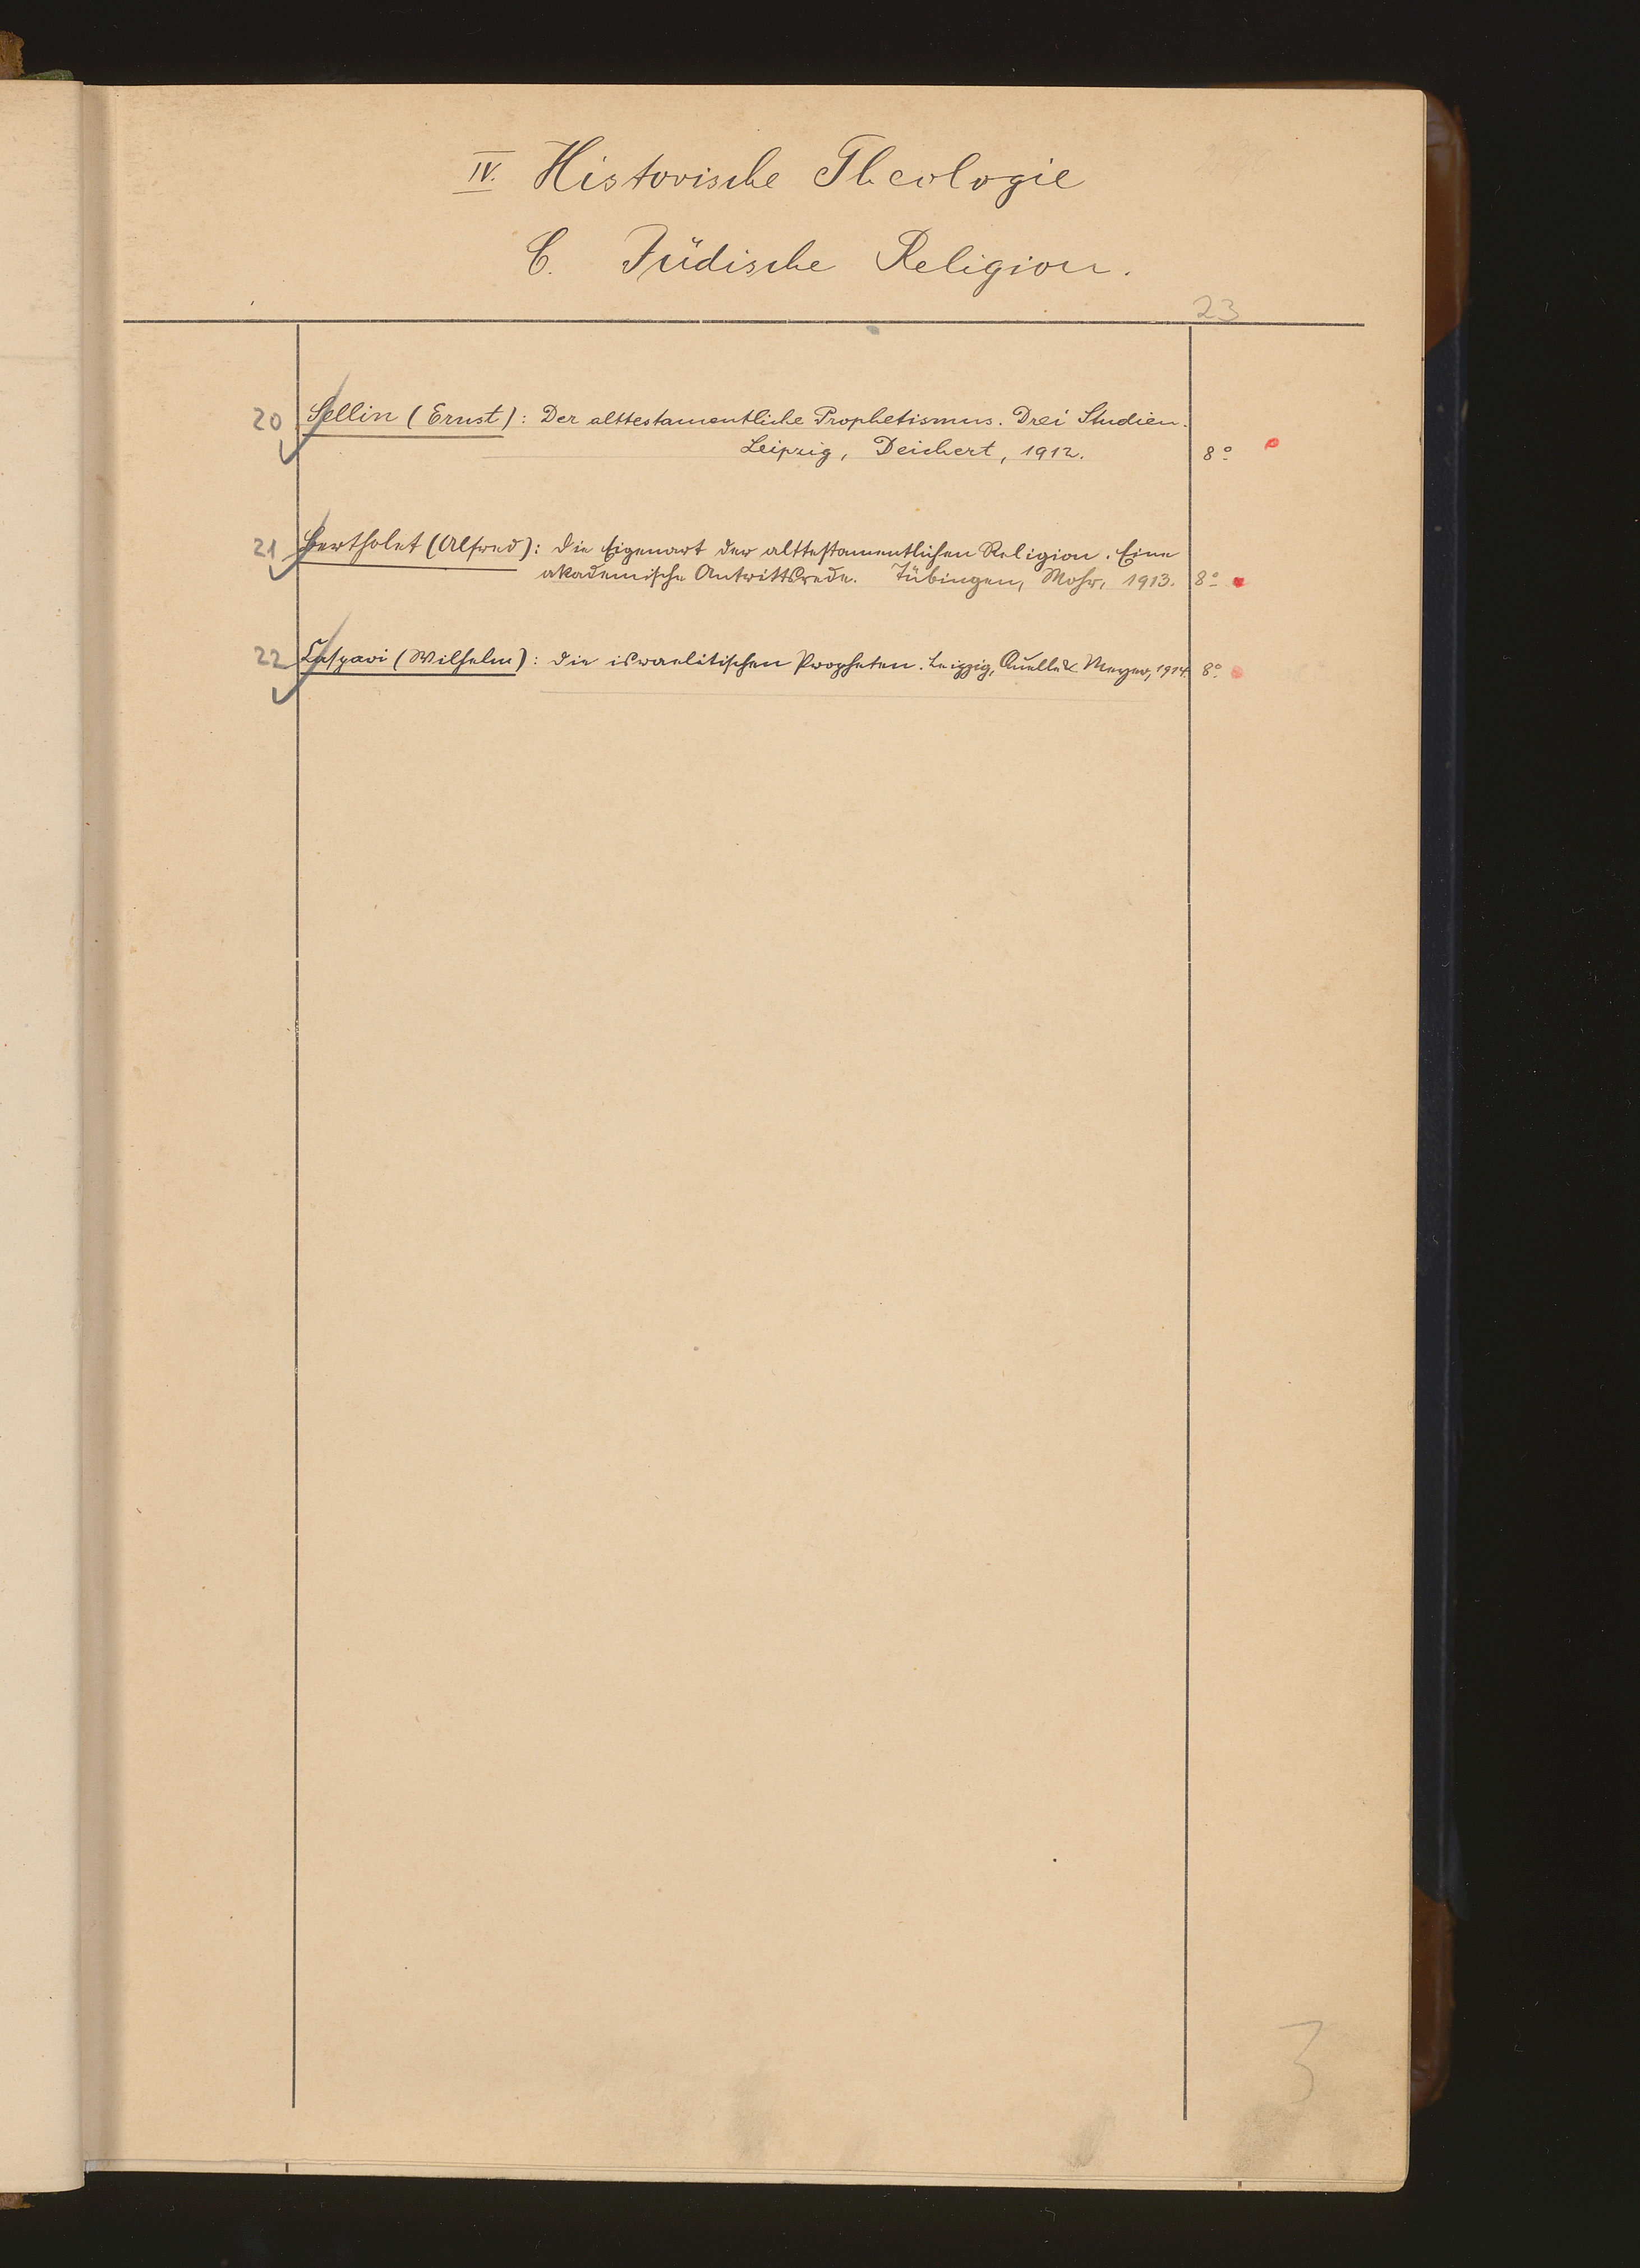 IV. Historische Theologie
C. Jüdische Religion.
23
20 Sellin (Ernst): Der alttestamentliche Prophetismus. Drei Studien.
Leipzig, Deichert, 1912. 8°
21 Bertholet (Alfred): Die Eigenart der alttestamentlichen Religion. Eine
akademische Antrittsrede. Tübingen, Mohr, 1913. 8°
22 Caspari (Wilhelm): Die israelitischen Propheten. Leipzig, Quelle & Meyer, 1914. 8°
3